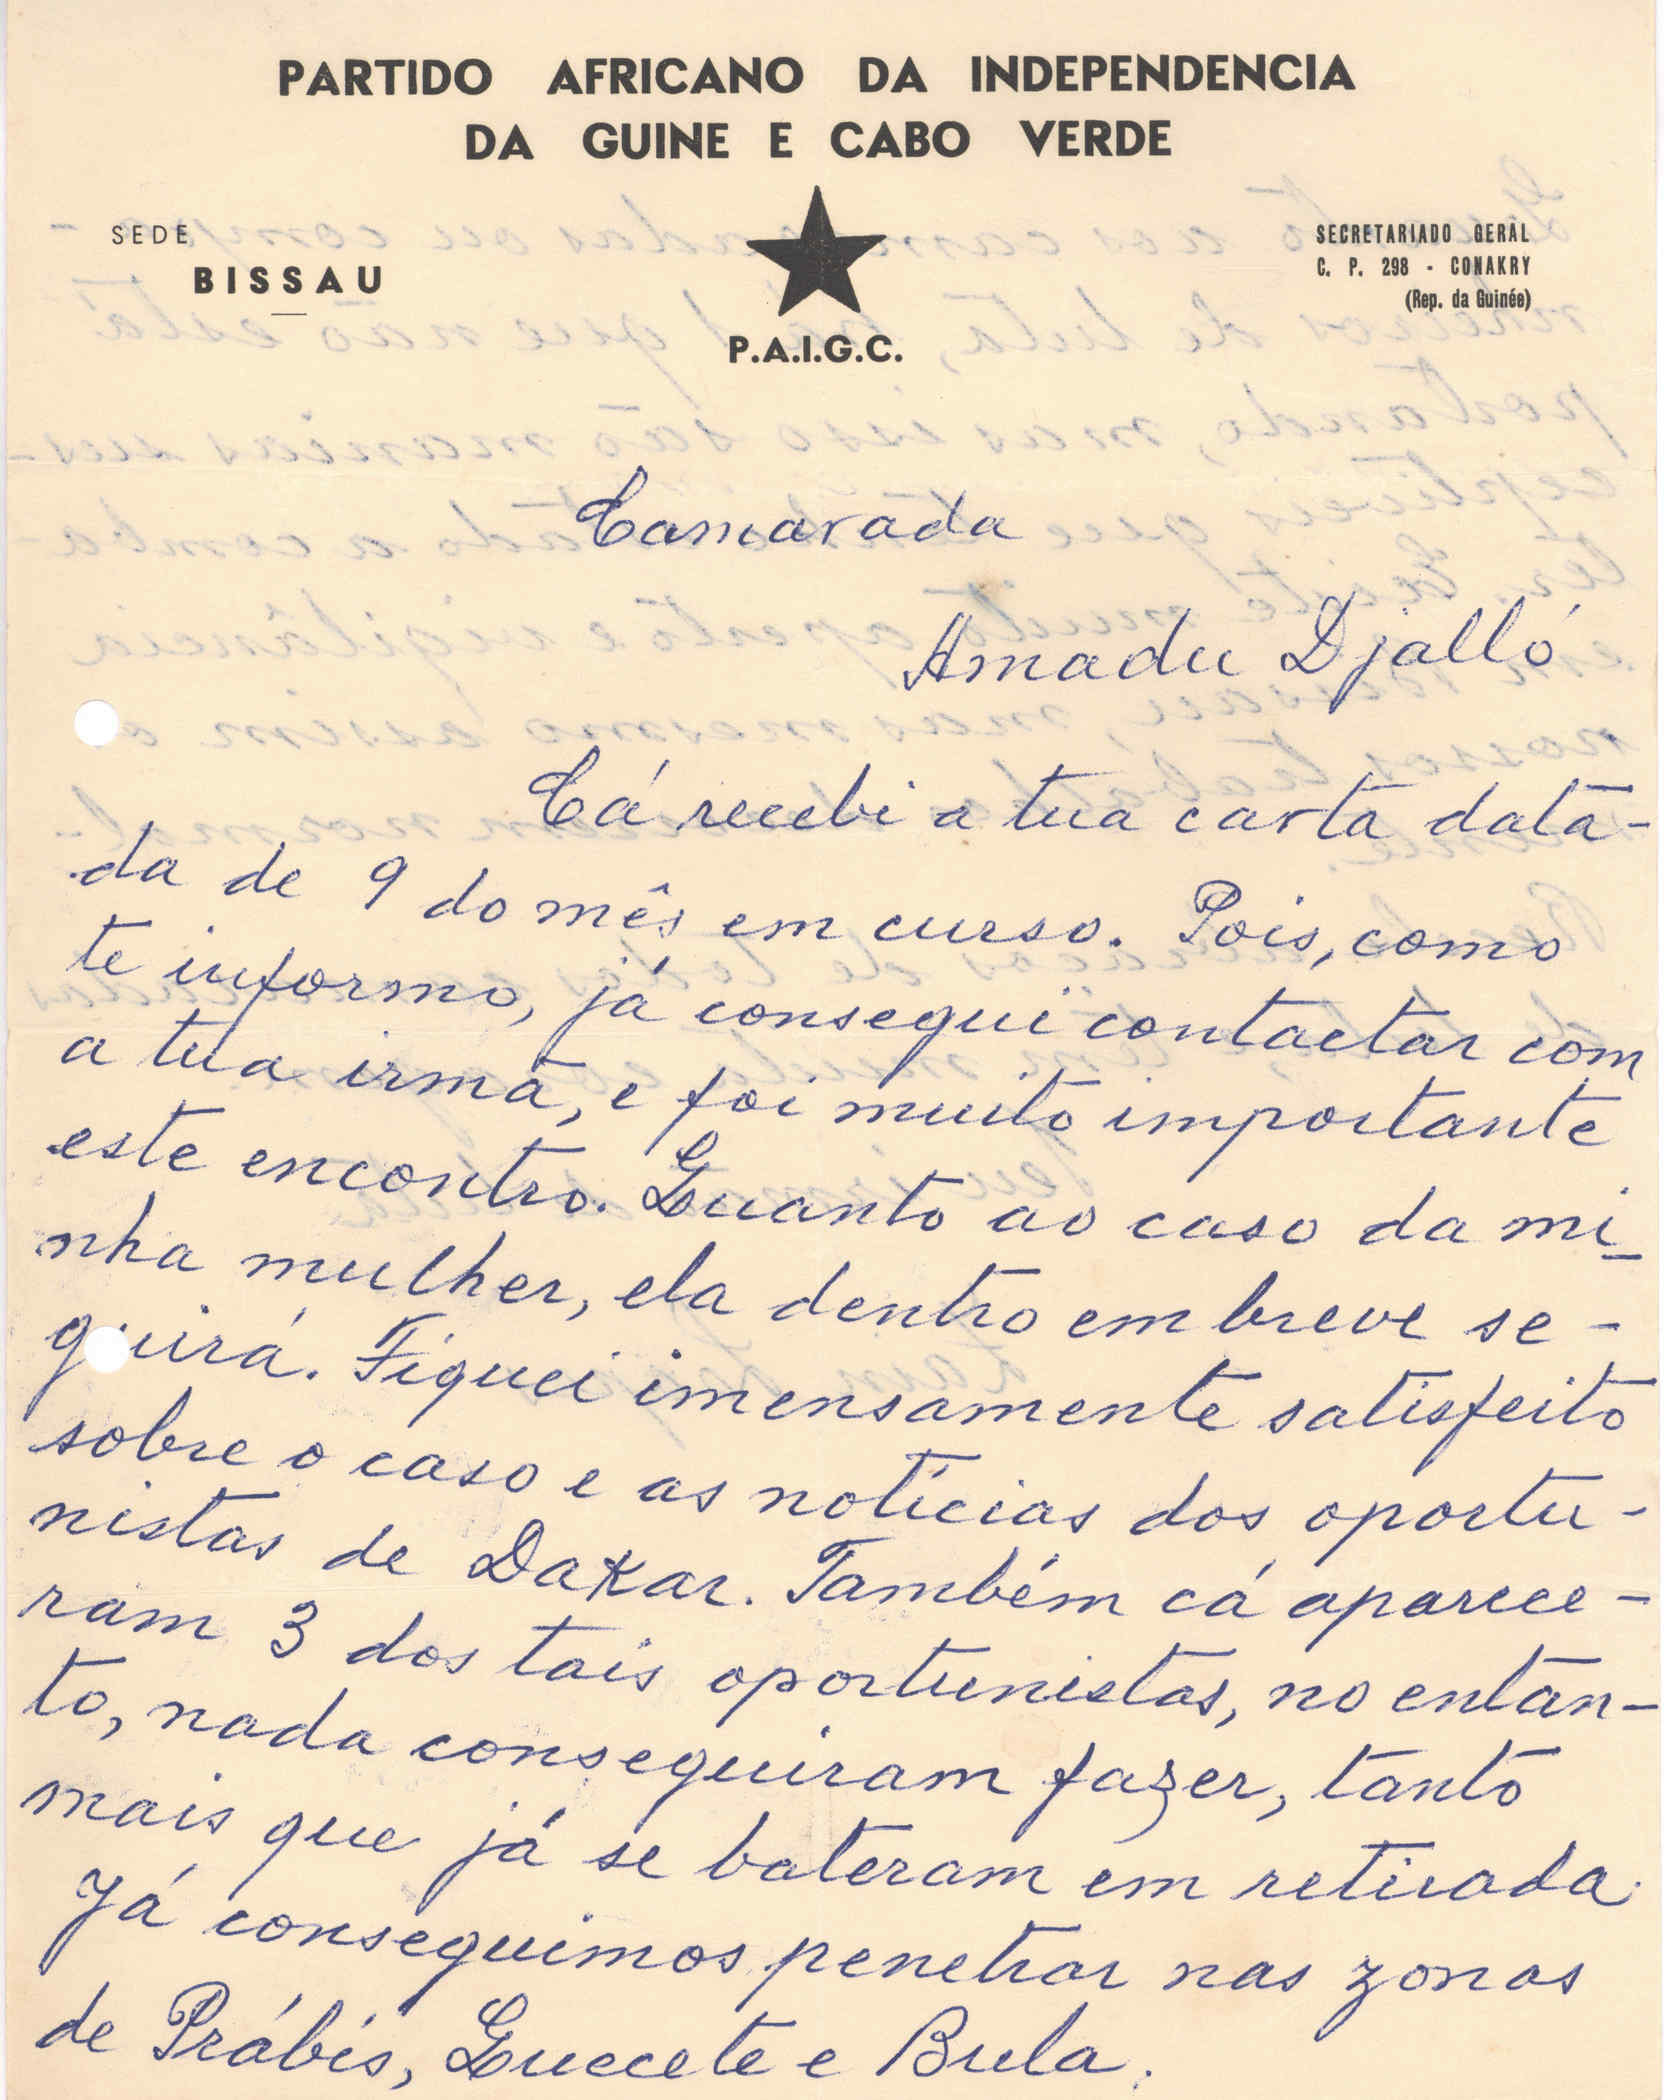 PARTIDO AFRICANO DA INDEPENDENCIA
DA GUINE E CABO VERDE
SEDE
BISSAU
P.A.I.G.C.
SECRETARIADO GERAL
C. P. 298 - CONAKRY
(Rep. da Guinée)
Camarada
Amadu Djalló
Cá recebi a tua carta data-
da de 9 do mês em curso. Pois, como
te informo, já consegui contactar com
a tua irmã, e foi muito importante
este encontro. Quanto ao caso da mi-
nha mulher, ela dentro em breve se-
guirá. Fiquei imensamente satisfeito
sobre o caso e as notícias dos oportu-
nistas de Dakar. Também cá aparece-
ram 3 dos tais oportunistas, no entan-
to, nada conseguiram fazer, tanto
mais que já se bateram em retirada.
Já conseguimos penetrar nas zonas
de Prábis, Quecete e Bula.